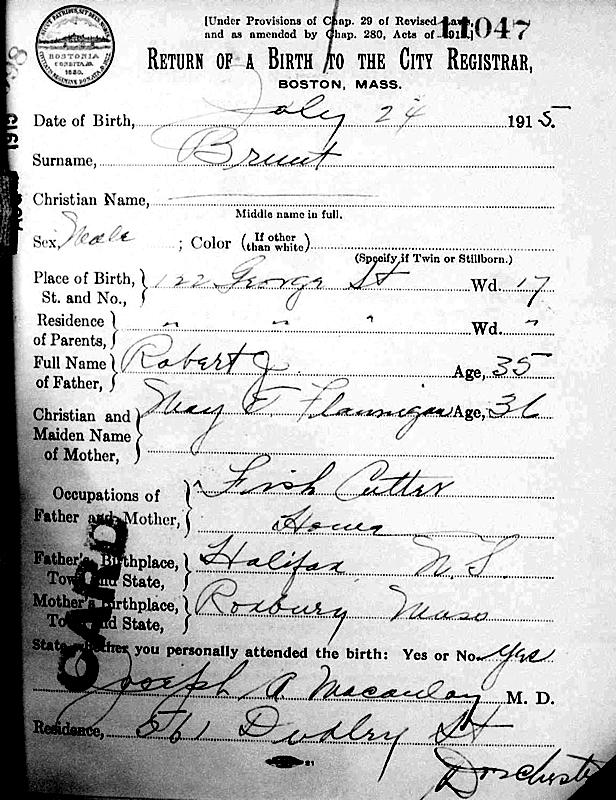 [Under Provisions of Chap. 29 of Revised Laws
and as amended by Chap. 280, Acts of 191 ;]
11047
BOSTONIA
CONDITA AD.
1630.
RETURN OF A BIRTH TO THE CITY REGISTRAR,
BOSTON, MASS.
Date of Birth, July 24 1915.
Surname, Brunt
Christian Name,
Middle name in full.
Sex, Male ; Color (If other than white)
(Specify if Twin or Stillborn.)
Place of Birth, St. and No., 122 George St Wd. 17
Residence of Parents, " " " Wd. "
Full Name of Father, Robert J. Age, 35
Christian and Maiden Name of Mother, May F. Flannigan Age, 36
Occupations of Father and Mother, Fish Cutter
Home
Father's Birthplace, Town and State, Halifax N.S.
Mother's Birthplace, Town and State, Roxbury Mass
State whether you personally attended the birth: Yes or No. Yes
Joseph A Macaulay M. D.
Residence, 561 Dudley St
Dorchester
CARD
21